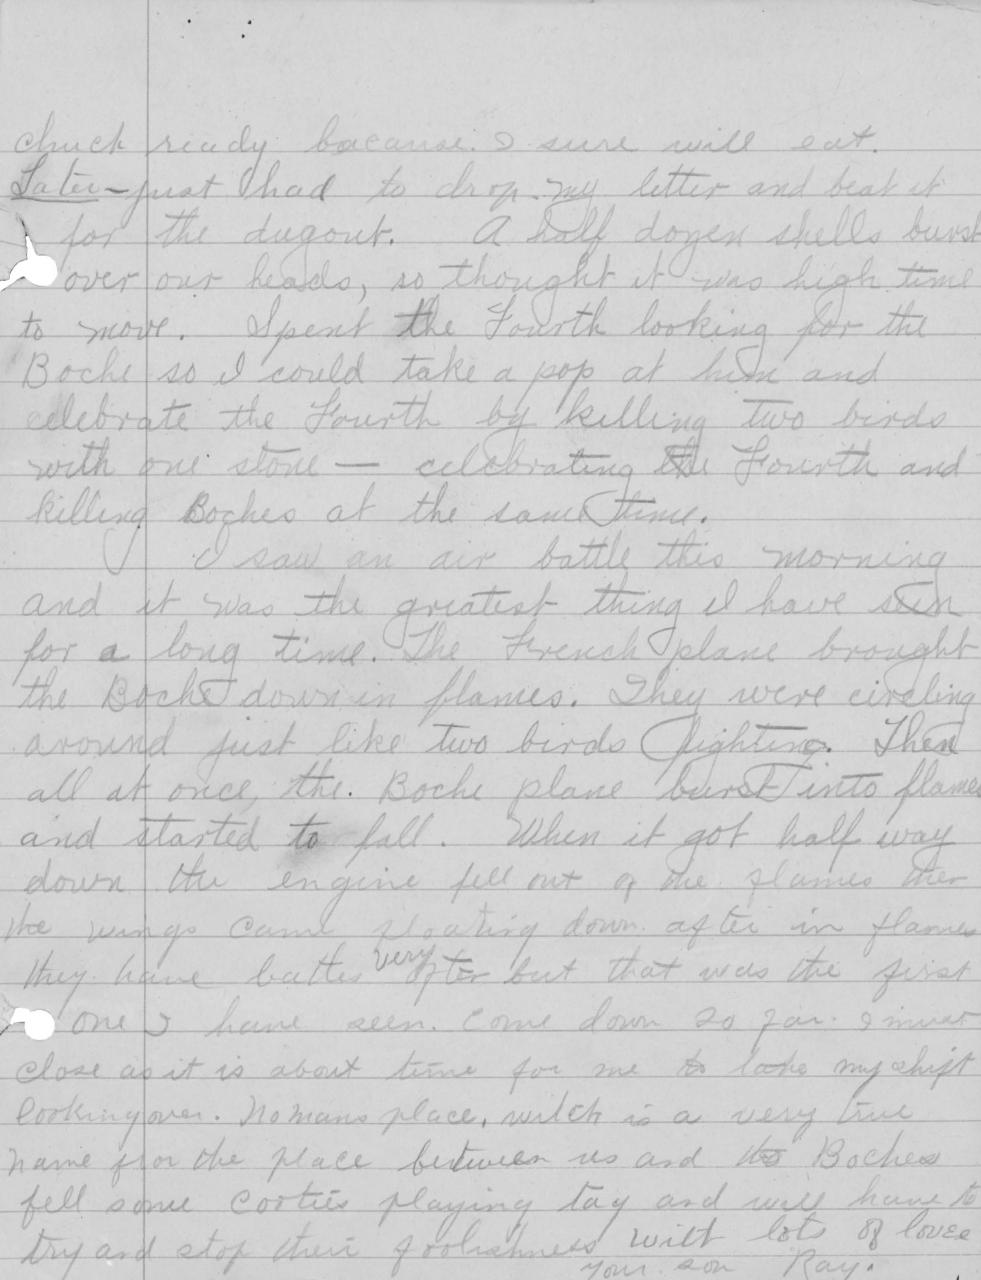 chuck ready bacause I sure will eat.
Later - just had to drop my letter and beat it
for the dugout. A half dozen shells burst
over our heads, so thought it was high time
to move. Spent the Fourth looking for the
Boche so I could take a pop at him and
celebrate the Fourth by killing two birds
with one stone — celebrating the Fourth and
killing Boches at the same time.
I saw an air battle this morning
and it was the greatest thing I have seen
for a long time. The French plane brought
the Boche down in flames. They were circling
around just like two birds fighting. Then
all at once, the Boche plane burst into flames
and started to fall. When it got half way
down the engine fell out of the flames then
the wings came floating down after in flames
they have battles very often but that was the first
one I have seen. come down so far. I must
close as it is about time for me to take my shift
looking over. No mans place, witch is a very true
name for the place between us and the Boches
fell some cooties playing tag and will have to
try and stop their foolishness with lots of love
your son Ray.